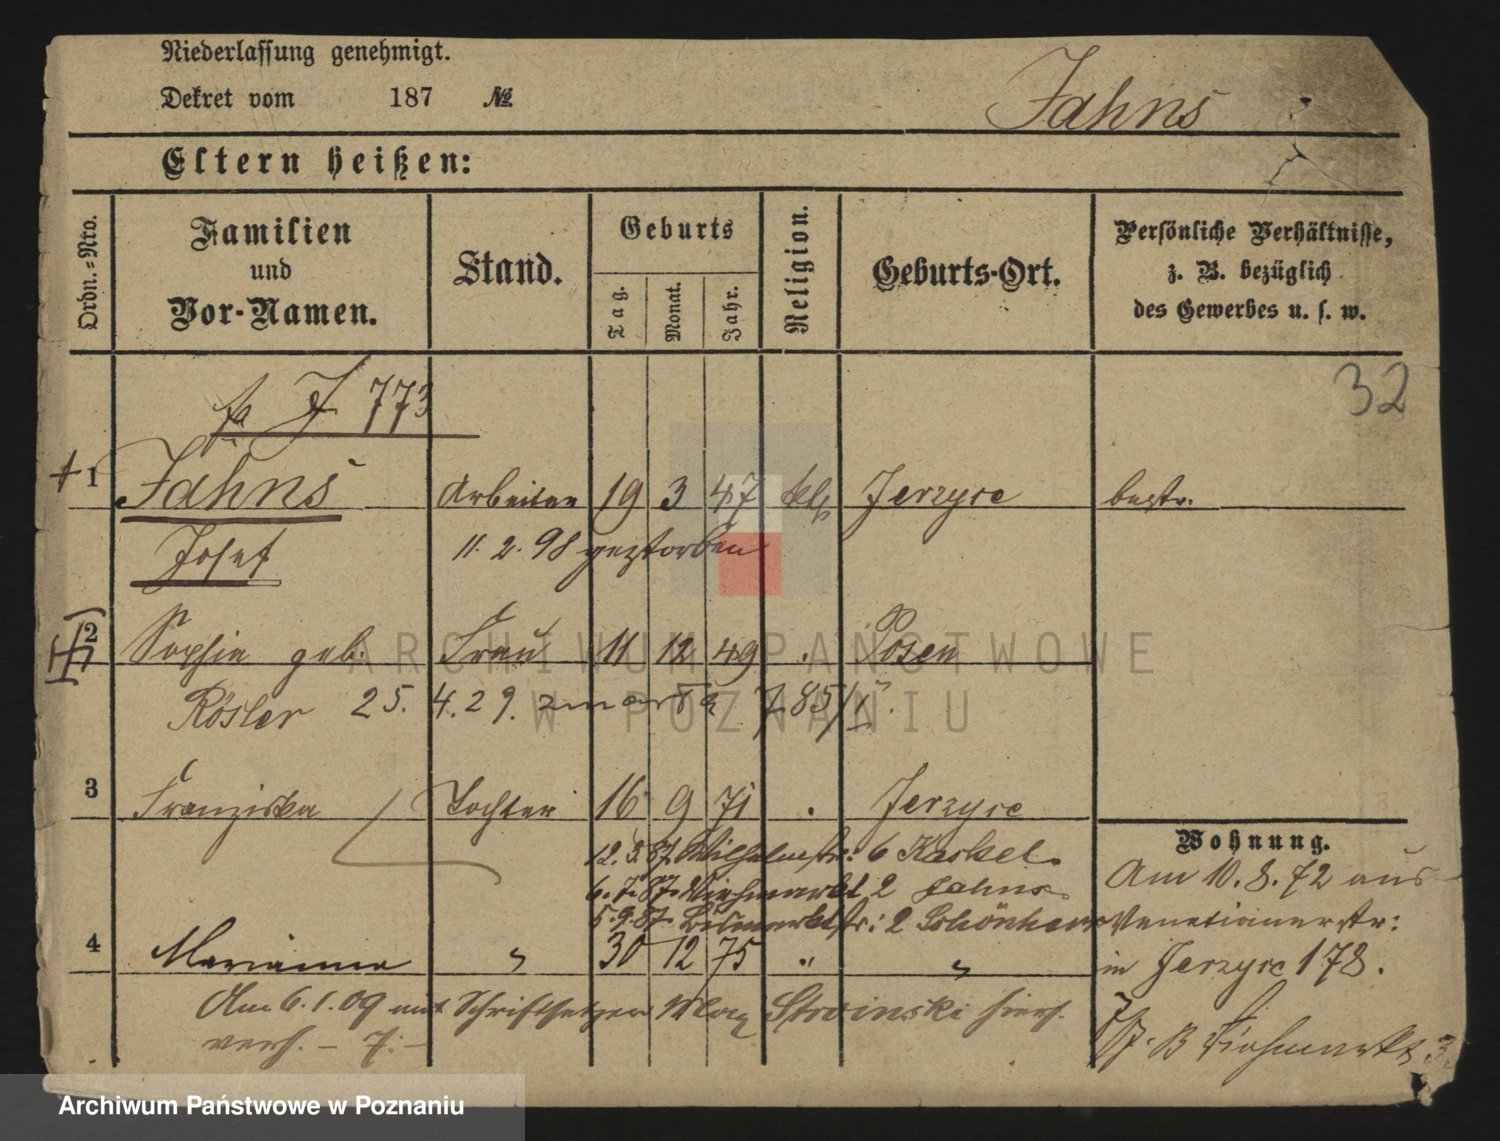 Niederlassung genehmigt.
Dekret vom 187 №
Jahns
Eltern heißen:
Ordn.-Nro.
Familien und Vor-Namen.
Stand.
Geburts
Tag.
Monat.
Jahr.
Religion.
Geburts-Ort.
Persönliche Verhältnisse, z. B. bezüglich des Gewerbes u. s. w.
32
J 773
1 Jahns Arbeiter 19 3 47 kth Jerzyce bestr.
Josef 11. 2. 98 gestorben
2 Sophie geb. Frau 11 12 49 Posen
Rösler 25. 4. 29. zmarła 785/
3 Franziska Tochter 16 9 71 Jerzyce
Wohnung.
12. 5. 87. Wilhelmstr: 6 Kaskel.
Am 10. 8. 72 aus
6. 7. 87. Viehmarkt 2 Jahns
5. 9. 87. Bismarckstr: 2 Schönherr
Venetianerstr:
4 Marianna " 30 12 75 " "
in Jerzyce 178.
Am 6. 1. 09 mit Schriftsetzer Max Stroinski hier
verh. — J. —
B Viehmarkt 3
ARCHIWUM PAŃSTWOWE
W POZNANIU
Archiwum Państwowe w Poznaniu